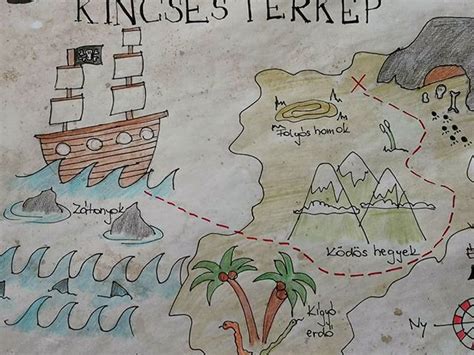 KINCSES TÉRKÉP
Folyós homok
Zátonyok
Ködös hegyek
Kígyó
erdő
Ny